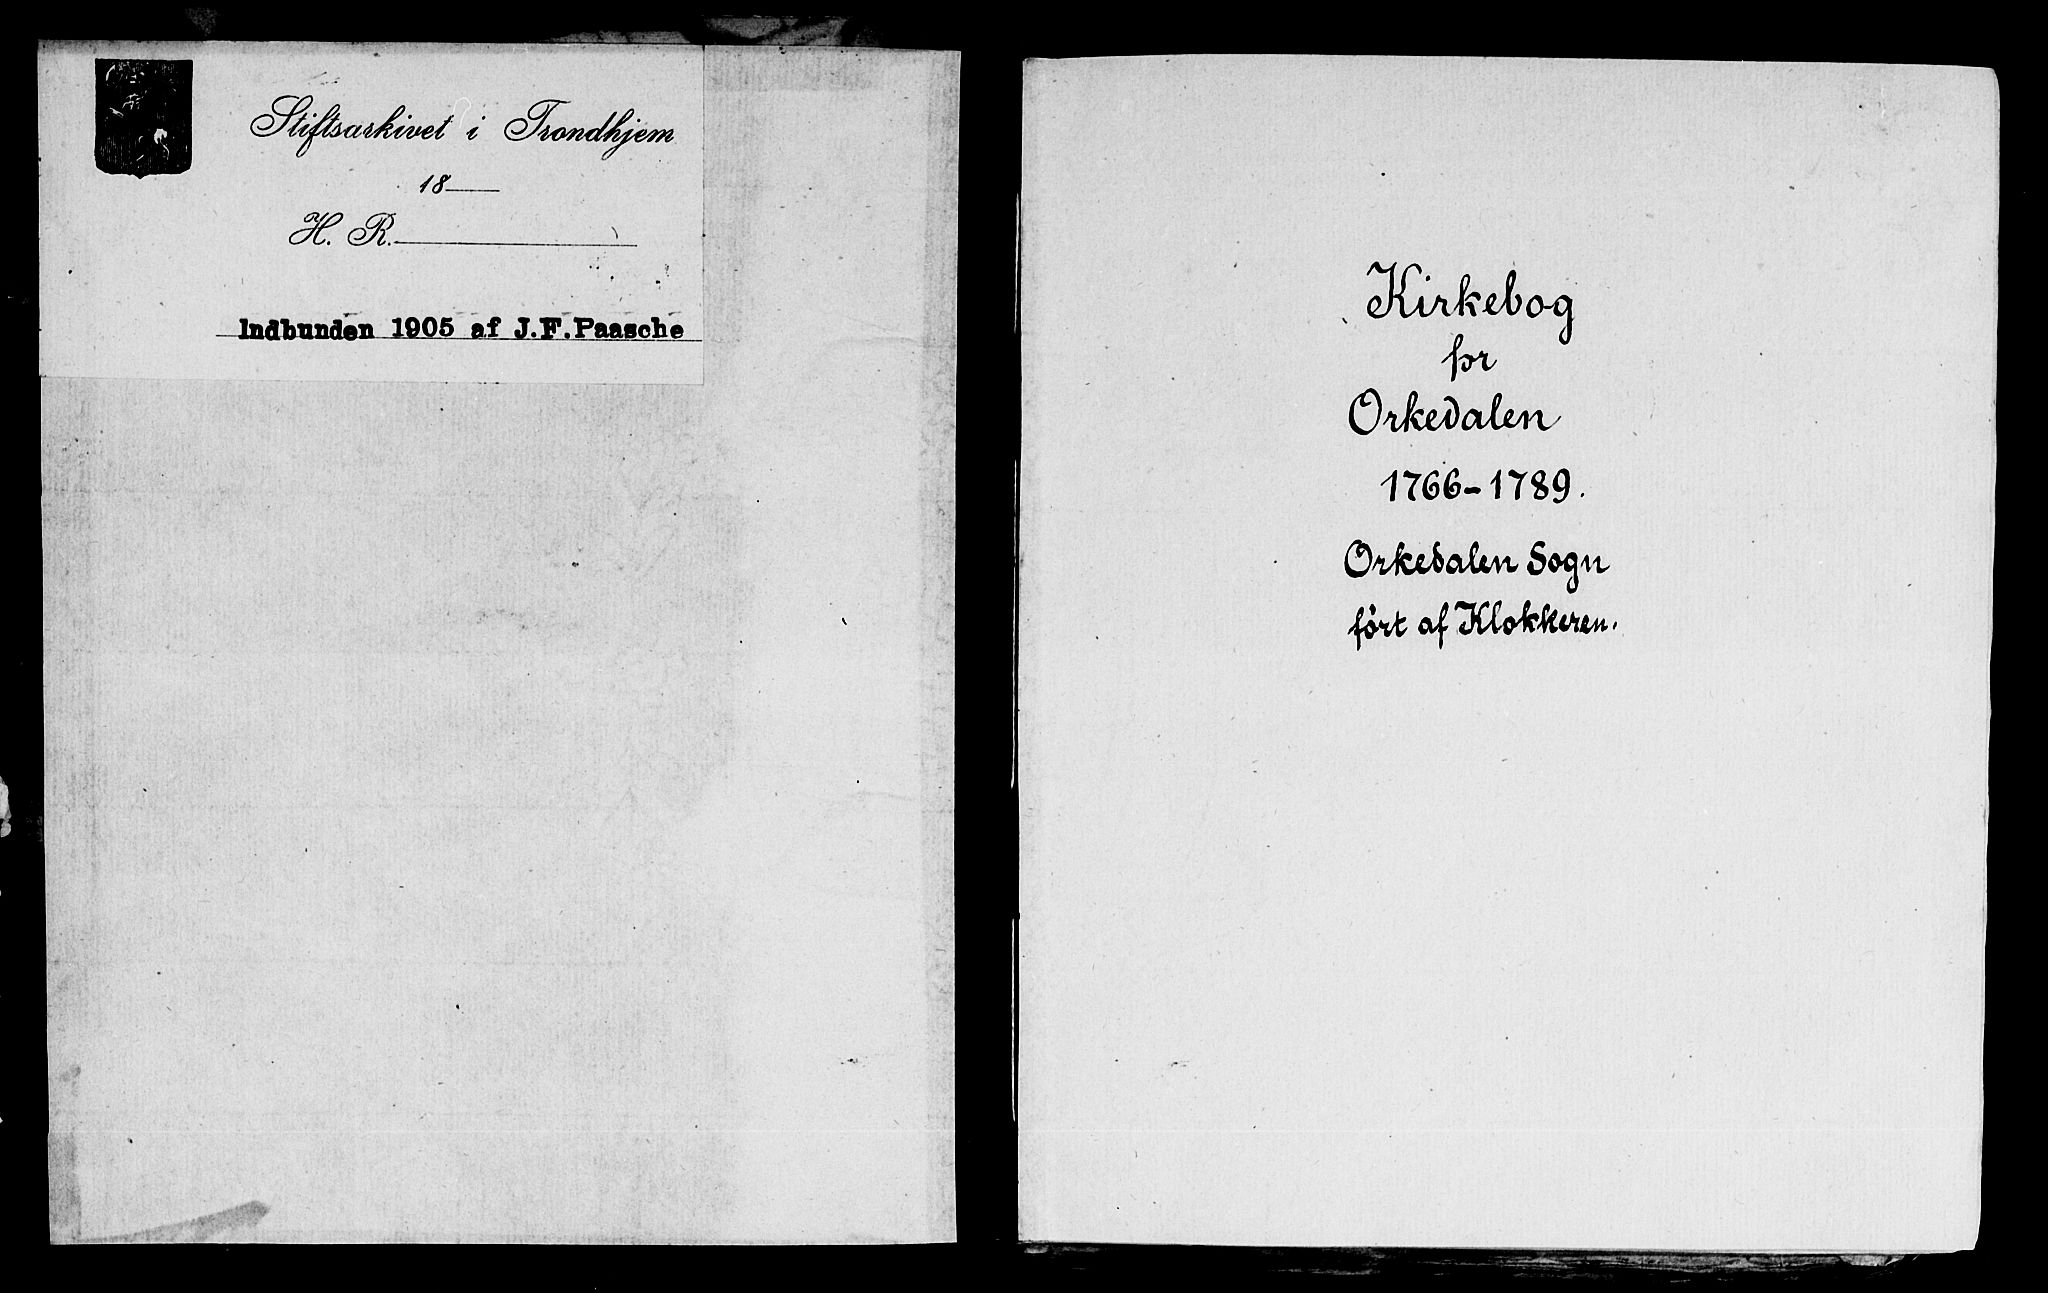 Stiftsarkivet i Trondhjem
18
H. R.
Indbunden 1905 af J.F.Paasche
Kirkebog
for
Orkedalen
1766-1789.
Orkedalen Sogn
ført af Klokkeren.